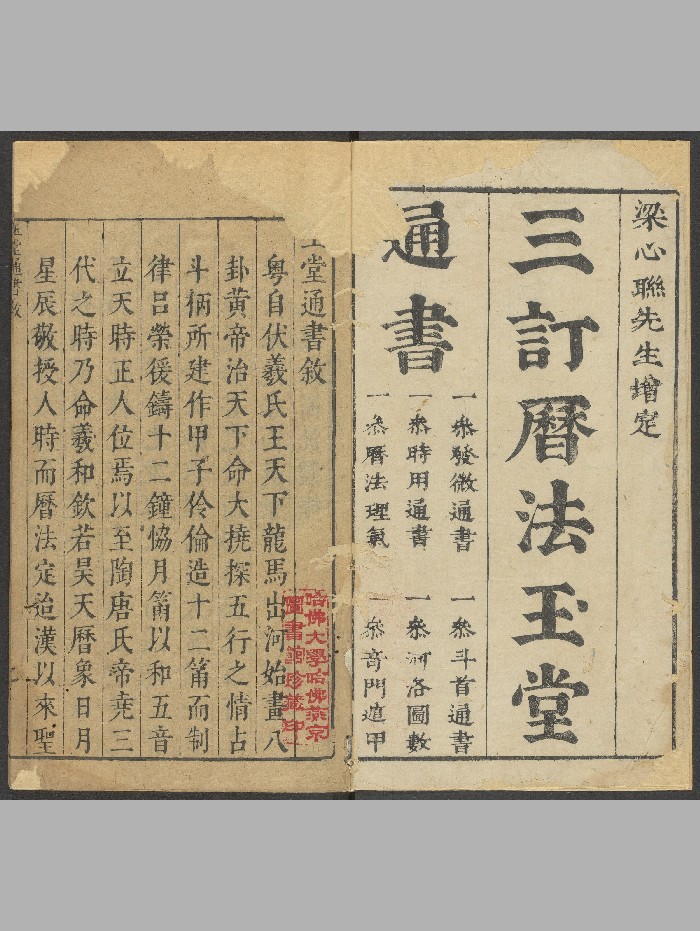 梁心聯先生增定
三訂曆法玉堂
通書
一叅發微通書
一叅斗首通書
一叅時用通書
一叅河洛圖數
一叅曆法理氣
一叅竒門遁甲
堂通書敘
粤自伏羲氏王天下龍馬出河始畫八
卦黃帝治天下命大撓探五行之情占
斗柄所建作甲子伶倫造十二筩而制
律呂榮猨鑄十二鐘恊月筩以和五音
立天時正人位焉以至陶唐氏帝堯三
代之時乃命羲和欽若昊天曆象日月
星辰敬授人時而曆法定迨漢以來聖
堂通書敘
哈佛大學哈佛燕京
圖書館珍藏印